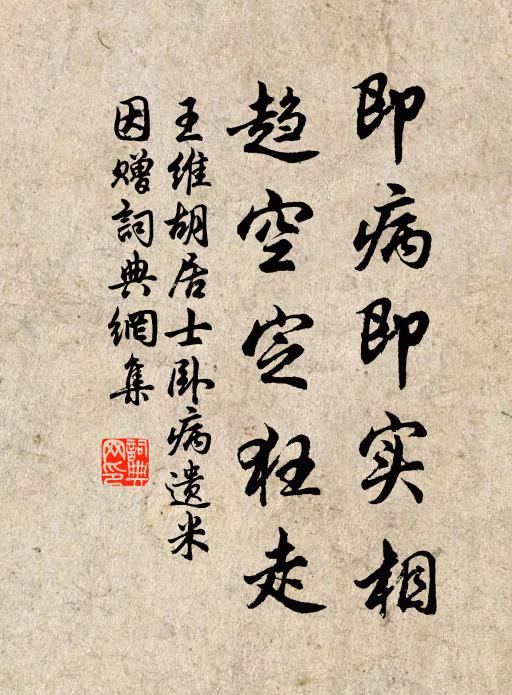 即病即实相
趋空定狂走
王维胡居士卧病遗米
因赠詞典網集
詞典网印